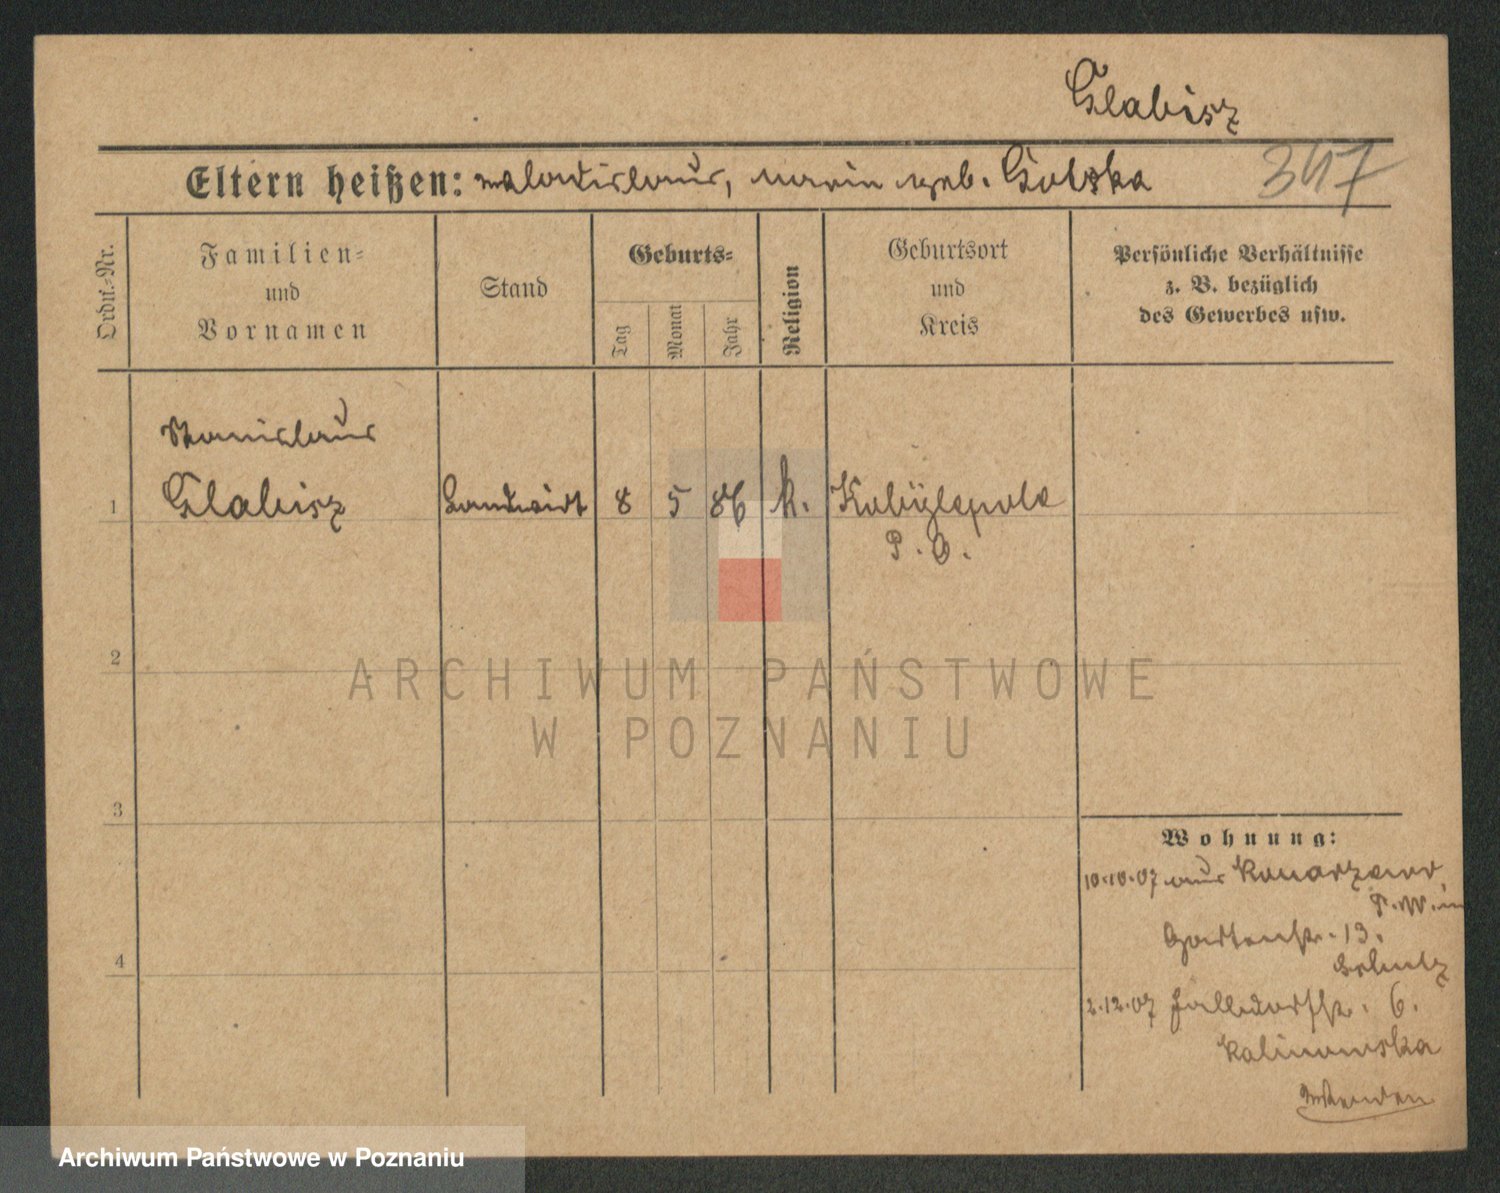 Glabisz
Eltern heißen: Wladislaus, Maria geb. Golska
347
Ordn.-Nr.
Familien-
und
Vornamen
Stand
Geburts-
Tag
Monat
Jahr
Religion
Geburtsort
und
Kreis
Persönliche Verhältnisse
z. B. bezüglich
des Gewerbes usw.
Stanislaus
1 Glabisz Landwirt 8 5 86 k. Kobylepole
P. O.
2
3
4
ARCHIWUM PAŃSTWOWE
W POZNANIU
Wohnung:
10.10.07 aus Konarzewo
P. W. in
Gartenstr. 13.
2.12.07 6.
Kalinowska
Archiwum Państwowe w Poznaniu